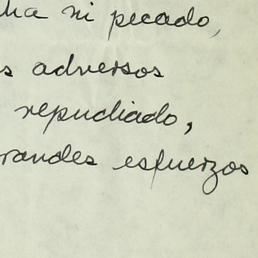 ha ni pecado,
s adversos
repudiado,
randes esfuerzos